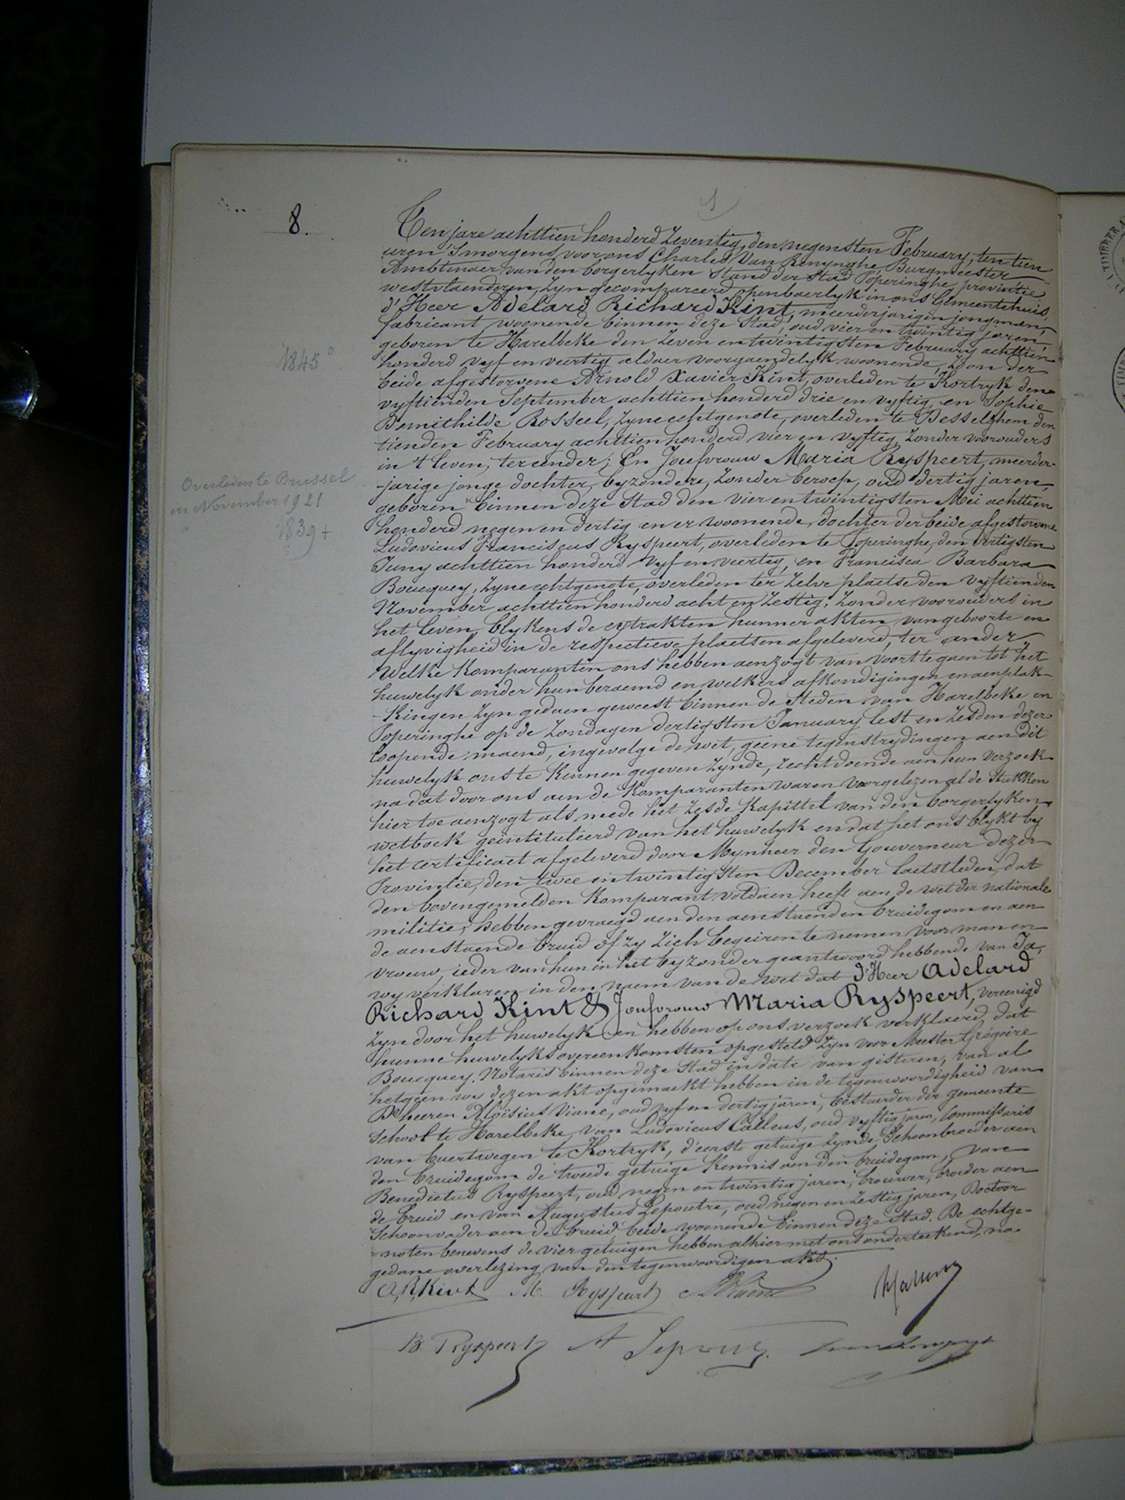 8.
1
Ten jare achttien honderd Zeventig, den negensten February, ten tien
uren 's morgens, voor ons Charles Van Renynghe, Burgmeester
Ambtenaer van den borgerlyken Stand der Stad Poperinghe, provintie
westvlaenderen, Zyn gecompareerd openbaerlyk in ons Gemeentehuis,
d'Heer Adelard Richard Kint, meerderjarigen jongman,
fabricant, woonende binnen deze Stad, oud vier en twintig jaren,
geboren te Harelbeke den Zeven en twintigsten February achttien
honderd vyf en veertig, aldaer voorgaendelyk woonende, Zoon der
beide afgestorvene Arnold Xavier Kint, overleden te Kortryk den
vyftienden September achttien honderd drie en vyftig, en Sophie
Bernithilde Rosseel, Zyne echtgenote, overleden te Desselghem den
tienden February achttien honderd vier en vyftig, Zonder voorouders
in 't leven, ter eender; En Joufvrouw Maria Ryspeert, meerder-
jarige jonge dochter, byzondere, Zonder beroep, oud dertig jaren,
geboren binnen deze Stad den vier en twintigsten Mei achttien
honderd negen en dertig en er woonende, dochter der beide afgestorvene
Ludovicus Franciscus Ryspeert, overleden te Poperinghe, den dertigsten
Juny achttien honderd vyf en veertig, en Francisca Barbara
Boucquey, Zyne echtgenote, overleden ter Zelve plaetse den vyftienden
November achttien honderd acht en Zestig, Zonder voorouders in
het leven, blykens de extrakten hunner akten van geboorte en
aflyvigheid in de respectieve plaetsen afgeleverd, ter ander
Welke Komparanten ons hebben aenzogt van voort te gaen tot het
huwelyk onder hun beraemd en welkers afkondigingen en aenplak-
kingen Zyn gedaen geweest binnen de Steden van Harelbeke en
Poperinghe op de Zondagen dertigsten January lest en Zesden dezer
loopende maend, ingevolge de wet, geene tegenstrydingen aen dit
huwelyk ons te kennen gegeven Zynde, recht doende aen hun verzoek
na dat door ons aen de Komparanten waren voorgelezen al de Stukken
hier toe aenzogt als mede het Zesde Kapittel van den borgerlyken
wetboek geïntituleerd van het huwelyk en dat het ons blykt by
het certificaet afgeleverd door Mynheer den Gouverneur dezer
Provintie, den twee en twintigsten December laetstleden, dat
den bovengemelden Komparant voldaen heeft aen de wet der nationale
militie, hebben gevraegd aen den aenstaenden bruidegom en aen
de aenstaende bruid of zy Zich begeiren te nemen voor man en
vrouw, ieder van hun in het byzonder geantwoord hebbende van Ja,
wy verklaren in den naem van de wet dat d'Heer Adelard
Richard Kint & Joufvrouw Maria Ryspeert, vereenigd
Zyn door het huwelyk en hebben op ons verzoek verklaerd, dat
hunne huwelyksovereenkomsten opgesteld Zyn voor Meester Grégoire
Boucquey, Notaris binnen deze Stad in date van gisteren, van al
hetgeen wy dezen akt opgemaekt hebben in de tegenwoordigheid van
De heeren Aloïsius Viane, oud vyf en dertig jaren, bestuurder der gemeente
School te Harelbeke, van Ludovicus Calleus, oud vyftig jaren, Commissaris
van buertwegen te Kortryk, d'eerste getuige Zynde Schoonbroeder aen
den bruidegom de tweede getuige kennis aen den bruidegom, van
Benedictus Ryspeert, oud negen en twintig jaren, brouwer, broeder aen
de bruid en van Augustus Lepoutre, oud negen en Zestig jaren, Doctoor
Schoonvader aen de bruid, beide woonende binnen deze Stad. De echtge-
noten benevens de vier getuigen hebben alhier met ons onderteekend, na
gedane overlezing van den tegenwoordigen akt.
1845°
Overleden te Brussel
in November 1921
1839 +
A R Kint M Ryspeert A Viane
B. Ryspeert A